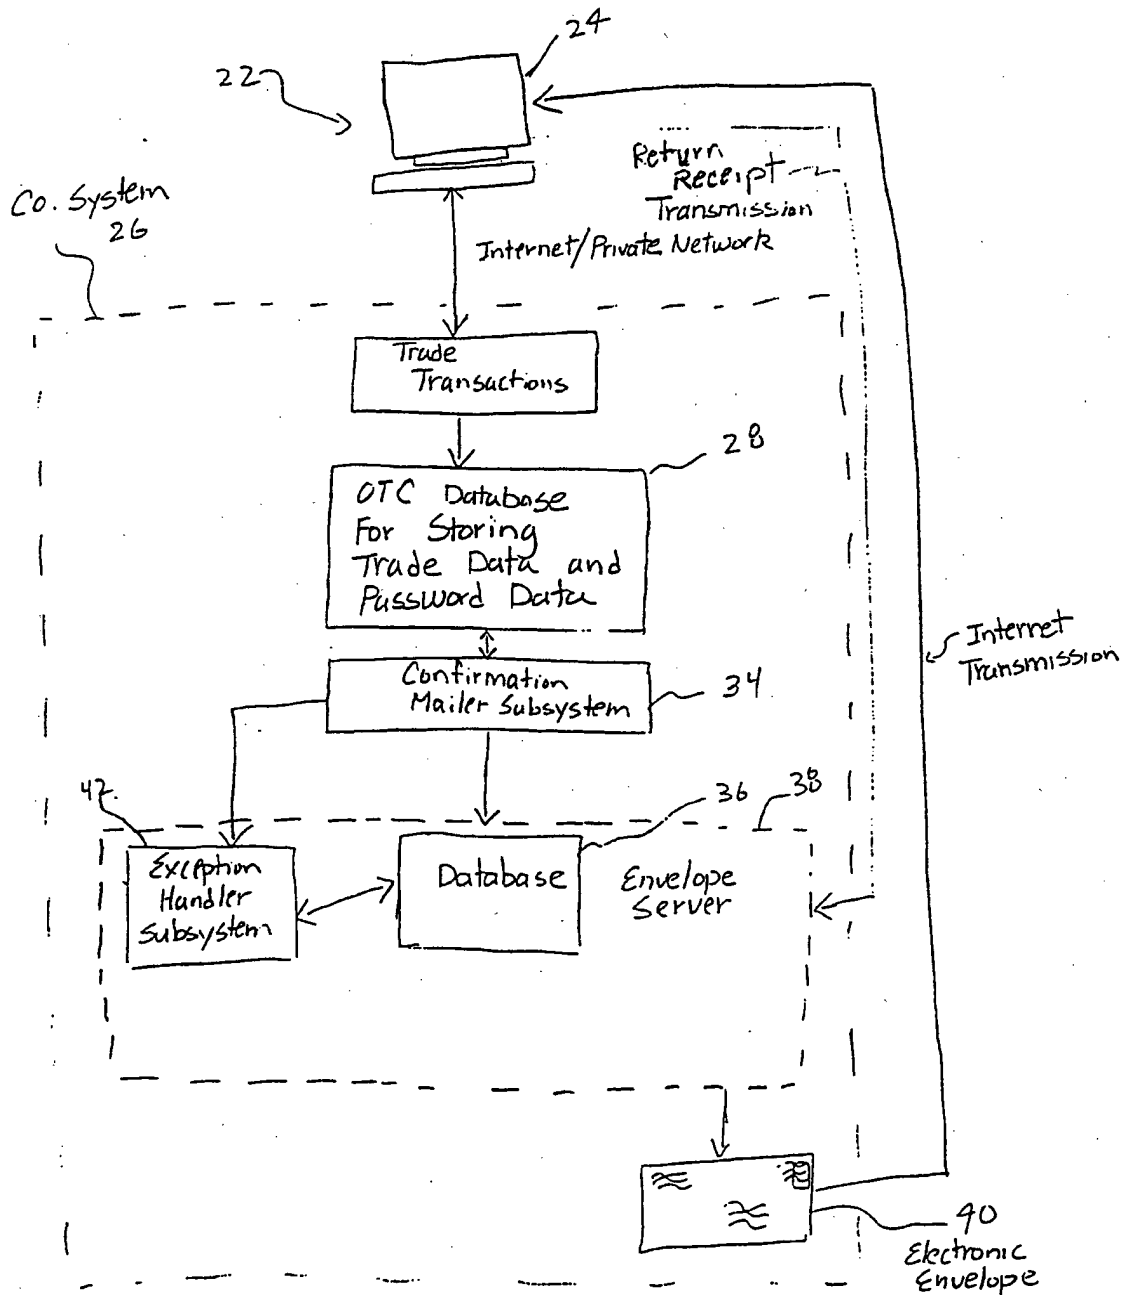 24
22
Return
Receipt
Transmission
Co. System
26
Internet/Private Network
Trade
Transactions
28
OTC Database
For Storing
Trade Data and
Password Data
Internet
Transmission
Confirmation
Mailer Subsystem
34
42
36
38
Exception
Handler
Subsystem
Database
Envelope
Server
40
Electronic
Envelope